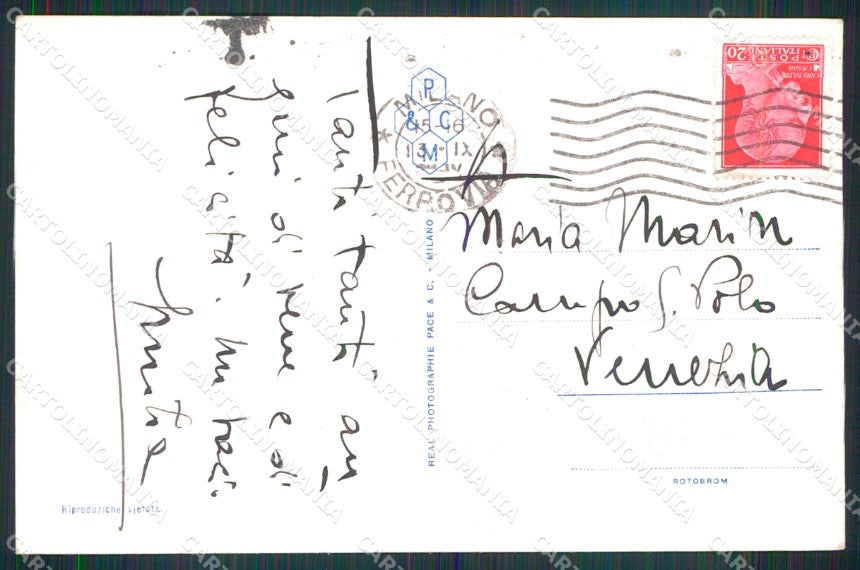 Tanti tanti au
guri di bene e di
felicità. Un baci
P
& C
M
MILANO
45-6
13·IX
FERROVIA
CENT 20
POSTE
ITALIANE
CAESAR
Maria Marin
Campo S. Polo
Venezia
REAL PHOTOGRAPHIE PACE & C. - MILANO
ROTOBROM
Riproduzione vietata
CARTOLINOMANIA